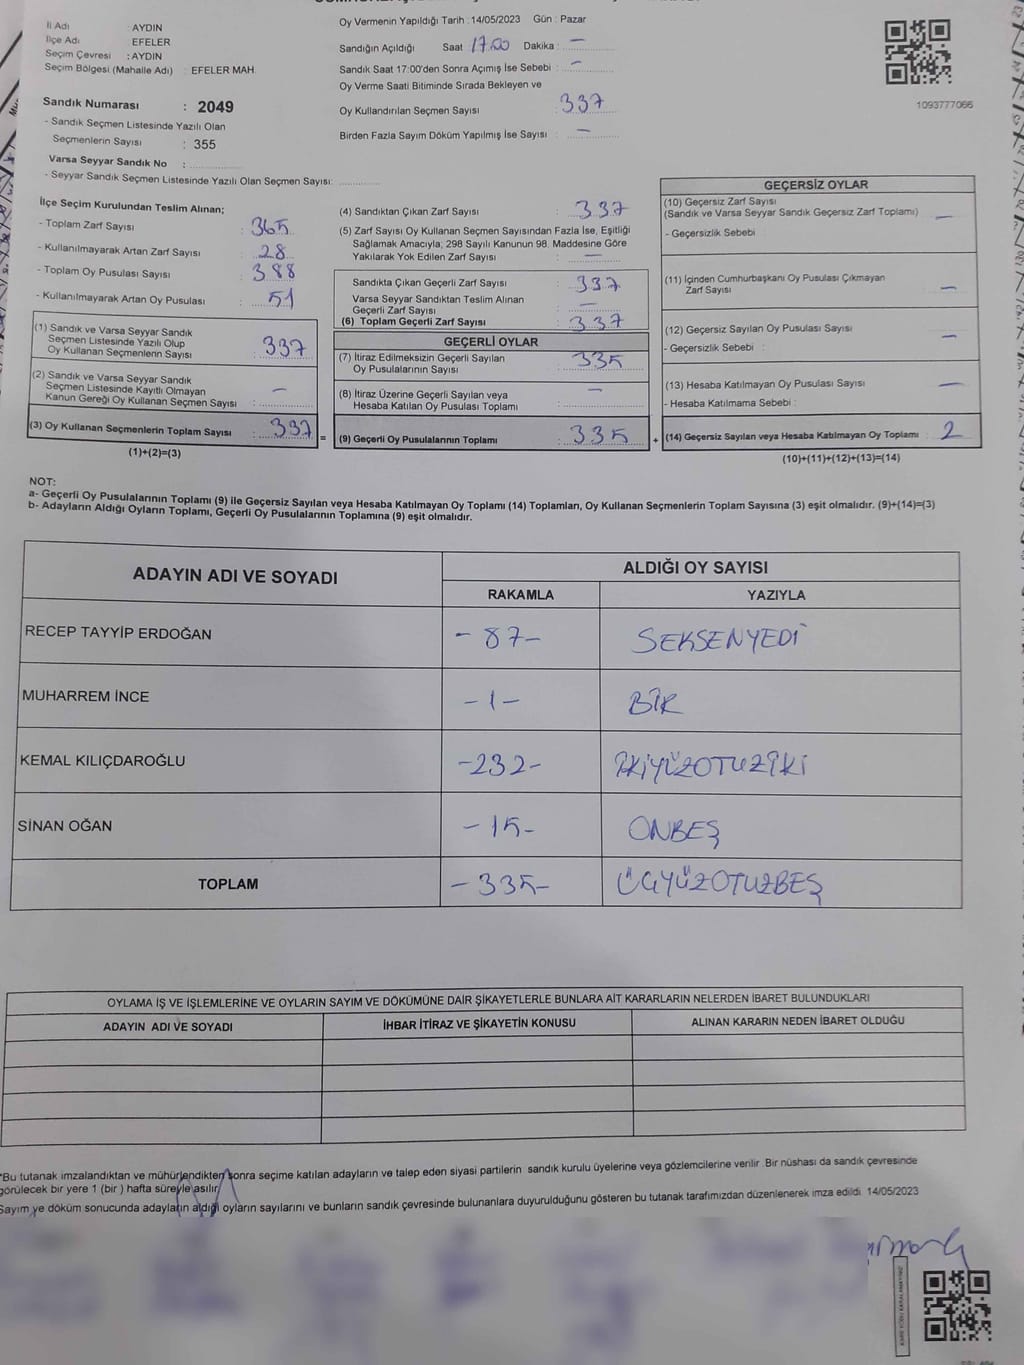 İl Adı : AYDIN
İlçe Adı : EFELER
Seçim Çevresi : AYDIN
Seçim Bölgesi (Mahalle Adı) : EFELER MAH.
Sandık Numarası : 2049
- Sandık Seçmen Listesinde Yazılı Olan
Seçmenlerin Sayısı : 355
Varsa Seyyar Sandık No :
- Seyyar Sandık Seçmen Listesinde Yazılı Olan Seçmen Sayısı:
Oy Vermenin Yapıldığı Tarih : 14/05/2023 Gün : Pazar
Sandığın Açıldığı Saat 17.00 Dakika : -
Sandık Saat 17:00'den Sonra Açımış İse Sebebi : -
Oy Verme Saati Bitiminde Sırada Bekleyen ve
Oy Kullandırılan Seçmen Sayısı : 337
Birden Fazla Sayım Döküm Yapılmış İse Sayısı : -
1093777066
İlçe Seçim Kurulundan Teslim Alınan;
- Toplam Zarf Sayısı : 365
- Kullanılmayarak Artan Zarf Sayısı : 28
- Toplam Oy Pusulası Sayısı : 388
- Kullanılmayarak Artan Oy Pusulası : 51
(1) Sandık ve Varsa Seyyar Sandık
Seçmen Listesinde Yazılı Olup
Oy Kullanan Seçmenlerin Sayısı : 337
(2) Sandık ve Varsa Seyyar Sandık
Seçmen Listesinde Kayıtlı Olmayan
Kanun Gereği Oy Kullanan Seçmen Sayısı : -
(3) Oy Kullanan Seçmenlerin Toplam Sayısı : 337 =
(1)+(2)=(3)
(4) Sandıktan Çıkan Zarf Sayısı : 337
(5) Zarf Sayısı Oy Kullanan Seçmen Sayısından Fazla İse, Eşitliği
Sağlamak Amacıyla; 298 Sayılı Kanunun 98. Maddesine Göre
Yakılarak Yok Edilen Zarf Sayısı : -
Sandıkta Çıkan Geçerli Zarf Sayısı : 337
Varsa Seyyar Sandıktan Teslim Alınan
Geçerli Zarf Sayısı : -
(6) Toplam Geçerli Zarf Sayısı : 337
GEÇERLİ OYLAR
(7) İtiraz Edilmeksizin Geçerli Sayılan
Oy Pusulalarının Sayısı : 335
(8) İtiraz Üzerine Geçerli Sayılan veya
Hesaba Katılan Oy Pusulası Toplamı : -
(9) Geçerli Oy Pusulalarının Toplamı : 335 +
GEÇERSİZ OYLAR
(10) Geçersiz Zarf Sayısı
(Sandık ve Varsa Seyyar Sandık Geçersiz Zarf Toplamı) : -
- Geçersizlik Sebebi :
(11) İçinden Cumhurbaşkanı Oy Pusulası Çıkmayan
Zarf Sayısı : -
(12) Geçersiz Sayılan Oy Pusulası Sayısı : -
- Geçersizlik Sebebi :
(13) Hesaba Katılmayan Oy Pusulası Sayısı : -
- Hesaba Katılmama Sebebi :
(14) Geçersiz Sayılan veya Hesaba Katılmayan Oy Toplamı : 2
(10)+(11)+(12)+(13)=(14)
NOT:
a- Geçerli Oy Pusulalarının Toplamı (9) ile Geçersiz Sayılan veya Hesaba Katılmayan Oy Toplamı (14) Toplamları, Oy Kullanan Seçmenlerin Toplam Sayısına (3) eşit olmalıdır. (9)+(14)=(3)
b- Adayların Aldığı Oyların Toplamı, Geçerli Oy Pusulalarının Toplamına (9) eşit olmalıdır.
ADAYIN ADI VE SOYADI ALDIĞI OY SAYISI
RAKAMLA YAZIYLA
RECEP TAYYİP ERDOĞAN -87- SEKSENYEDİ
MUHARREM İNCE -1- BİR
KEMAL KILIÇDAROĞLU -232- İKİYÜZOTUZİKİ
SİNAN OĞAN -15- ONBEŞ
TOPLAM -335- ÜÇYÜZOTUZBEŞ
OYLAMA İŞ VE İŞLEMLERİNE VE OYLARIN SAYIM VE DÖKÜMÜNE DAİR ŞİKAYETLERLE BUNLARA AİT KARARLARIN NELERDEN İBARET BULUNDUKLARI
ADAYIN ADI VE SOYADI İHBAR İTİRAZ VE ŞİKAYETİN KONUSU ALINAN KARARIN NEDEN İBARET OLDUĞU
*Bu tutanak imzalandıktan ve mühürlendikten sonra seçime katılan adayların ve talep eden siyasi partilerin sandık kurulu üyelerine veya gözlemcilerine verilir. Bir nüshası da sandık çevresinde
görülecek bir yere 1 (bir ) hafta süreyle asılır.
Sayım ve döküm sonucunda adayların aldığı oyların sayılarını ve bunların sandık çevresinde bulunanlara duyurulduğunu gösteren bu tutanak tarafımızdan düzenlenerek imza edildi. 14/05/2023